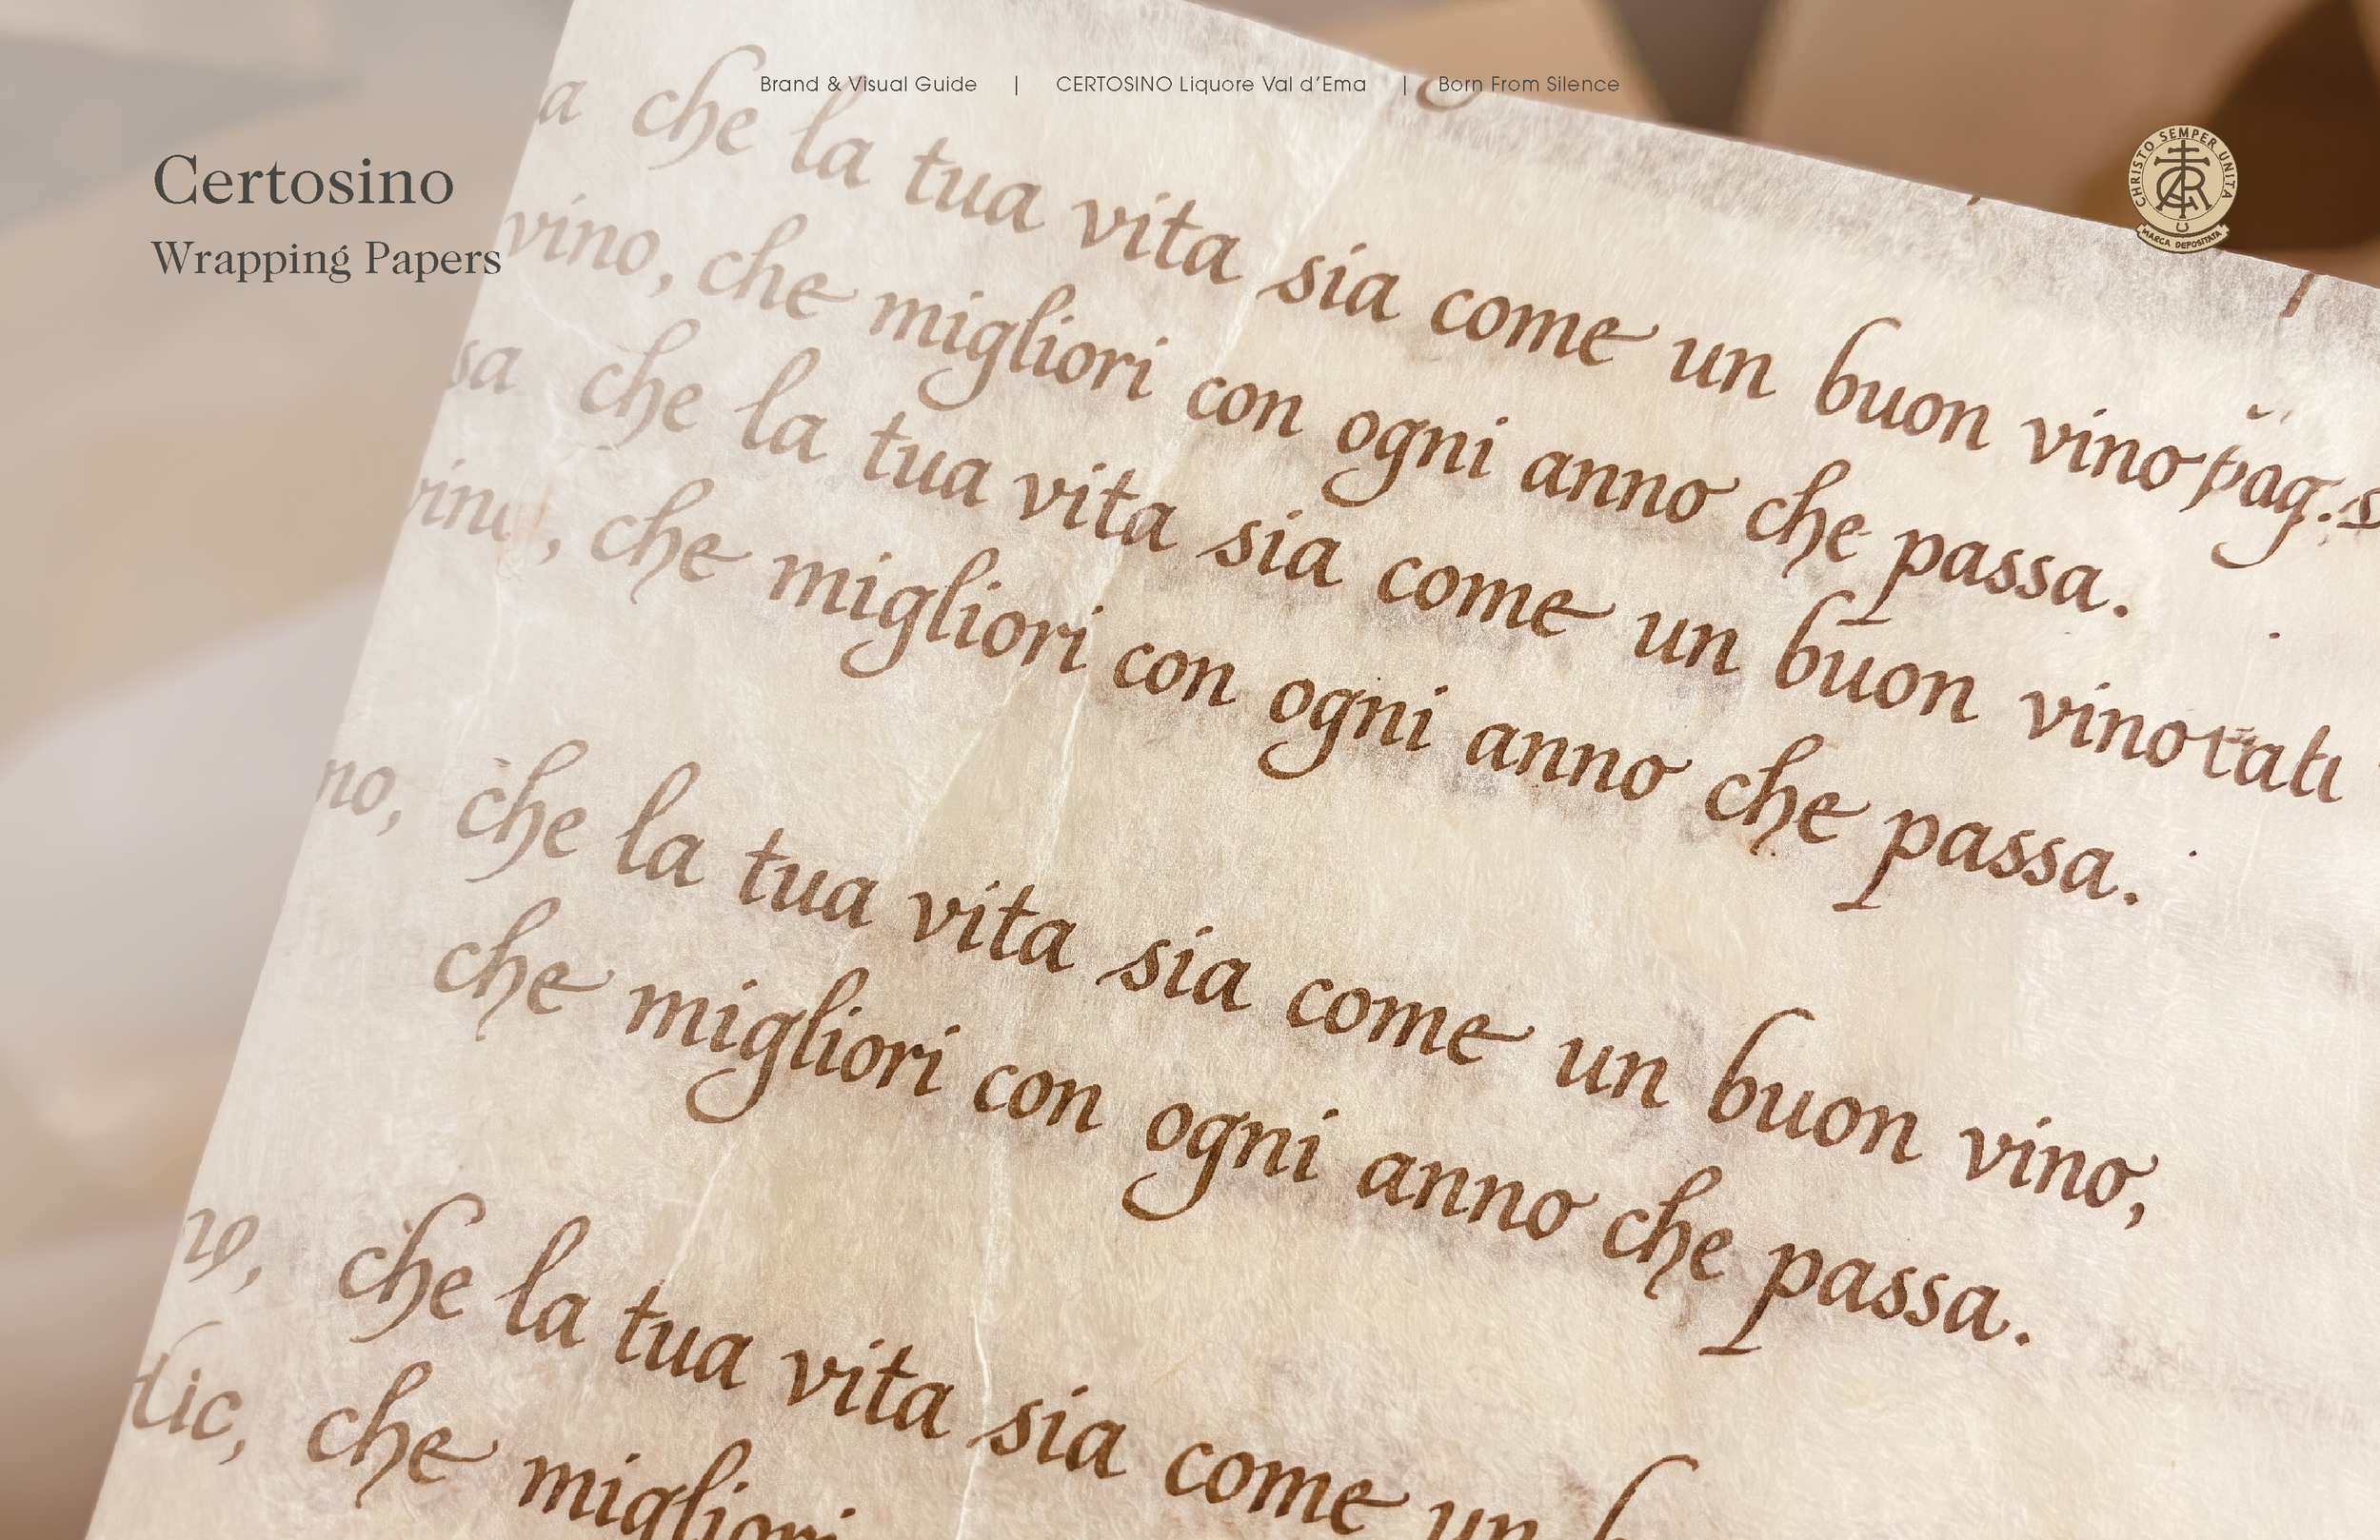 Brand & Visual Guide | CERTOSINO Liquore Val d'Ema | Born From Silence
Certosino
Wrapping Papers
CHRISTO SEMPER UNITA
MARCA DEPOSITATA
a che la tua vita sia come un buon vino pag. s
vino, che migliori con ogni anno che passa.
sa che la tua vita sia come un buon vino
vino, che migliori con ogni anno che passa.
no, che la tua vita sia come un buon vino,
che migliori con ogni anno che passa.
che la tua vita sia come un b
che migliori